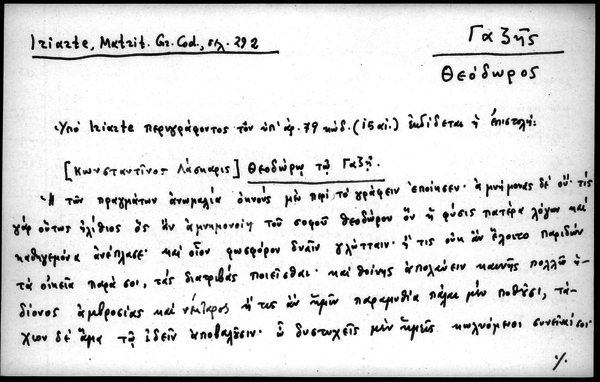 Iriarte, Matrit. Gr. Cod., σελ. 292
Γαζῆς
Θεόδωρος
Ὑπὸ Iriarte περιγράφοντος τὸν ὑπ' ἀρ. 79 κώδ. (15 αἰ.) ἐκδίδεται ἡ ἐπιστολή:
[Κωνσταντῖνος Λάσκαρις] Θεοδώρῳ τῷ Γαζῇ.
Ἡ τῶν πραγμάτων ἀνωμαλία ὀκνοὺς μὲ πρὶ τὸ γράφειν ἐποίησεν· ἀμνήμονας δὲ οὔ· τίς
γὰρ οὕτως ἠλίθιος ὃς ἂν ἀμνημονοίη τοῦ σοφοῦ Θεοδώρου ὃν ἡ φύσις πατέρα λόγων καὶ
καθηγεμόνα ἀνέπλασε· καὶ οἷον φωσφόρον δυεῖν γλώτταιν· ἤ τις οὐκ ἂν ἕλοιτο παριδὼν
τὰ οἰκεῖα παρὰ σοι, τὰς διατριβὰς ποιεῖσθαι· καὶ θοίνης ἀπολαύειν καινῆς πολλῷ ἡ-
δίονος ἀμβροσίας καὶ νέκταρος ἥτις ἂν ἡμῖν παραμυθία πάλαι μὲν ποθοῦσι, τά-
χιον δὲ ἅμα τῷ ἰδεῖν ἀποβαλοῦσιν· ὦ δυστυχεῖς μὲν ἡμεῖς κωλυόμενοι συνεῖναί σοι·
%.